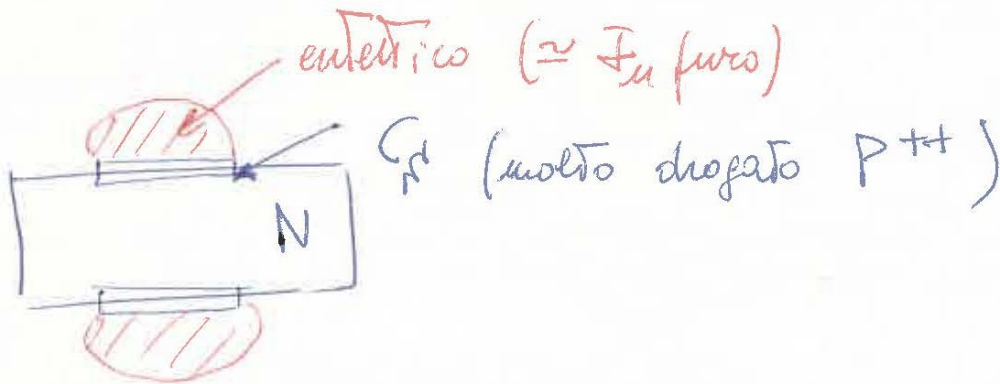 eutettico (≃ In puro)
Ge (molto drogato P++)
N